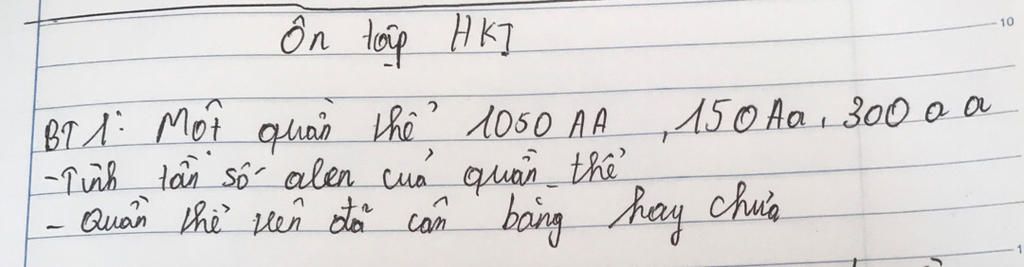 Ôn tập HKI
10
BT 1: Một quần thể 1050 AA, 150 Aa, 300 a a
- Tính tần số alen của quần thể
- Quần thể trên đã cân bằng hay chưa
1